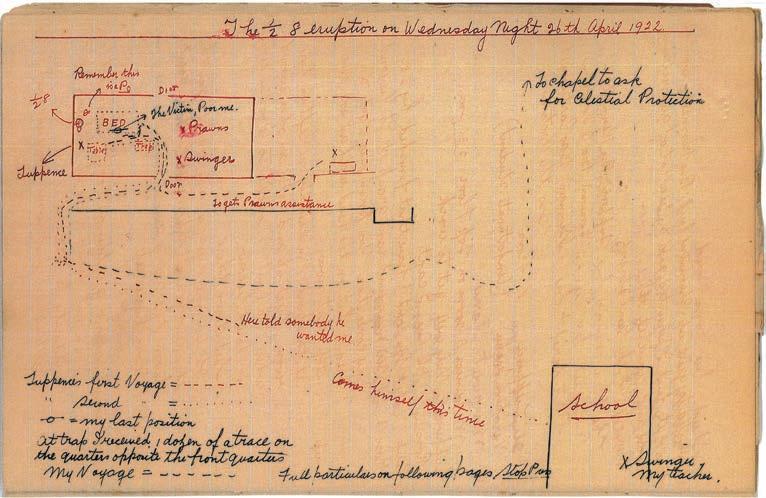 The ½ 8 eruption on Wednesday Night 26th April 1922.
Remember this
is Po
½ 8
Door
BED
The Victim, Poor me.
x Prawns
x Swinger
x
x
Tuppence
Door
To get Prawns assistance
To chapel to ask
for Celestial Protection
Here told somebody he
wanted me
Comes himself this time
Tuppence's first Voyage =
" Second " =
-o- = my last position
At trap I received 1 dozen of a trace on
the quarters opposite the front quarters
My Voyage =
Full particulars on following pages Stop Pres
School
x Swinger
My teacher.